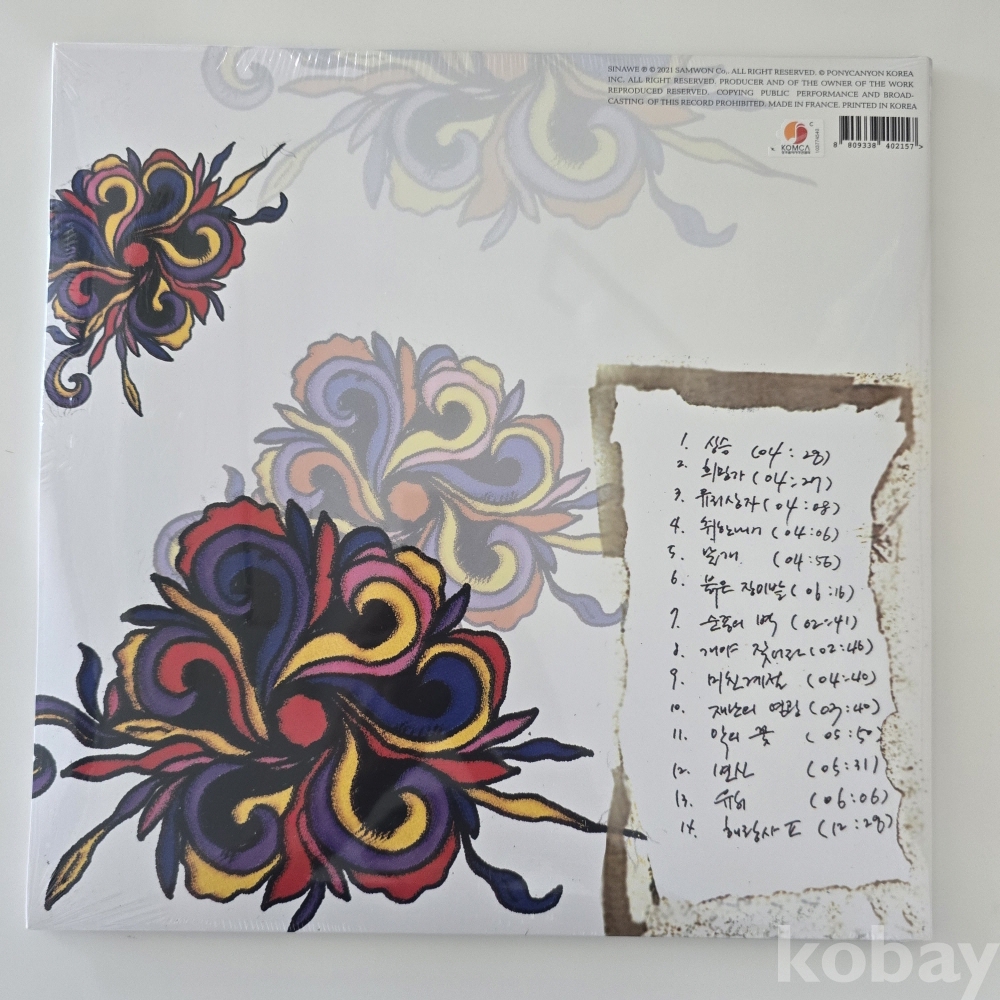 SINAWE ℗ © 2021 SAMWON Co,. ALL RIGHT RESERVED. © PONYCANYON KOREA
INC. ALL RIGHT RESERVED. PRODUCER AND OF THE OWNER OF THE WORK
REPRODUCED RESERVED. COPYING PUBLIC PERFORMANCE AND BROAD-
CASTING OF THIS RECORD PROHIBITED. MADE IN FRANCE. PRINTED IN KOREA
KOMCA
8 809338 402157 >
1. 상승 (04:28)
2. 희망가 (04:27)
3. 유리상자 (04:08)
4. 취한나비 (04:06)
5. 날개 (04:56)
6. 붉은 장미밭 (06:16)
7. 순응의 벽 (02:41)
8. 개야 짖어라 (02:46)
9. 미친계절 (04:40)
10. 재난의 영광 (03:40)
11. 악의 꽃
12. (05:31)
13. 유희 (06:06)
14. 해랑사 II (12:28)
kobay